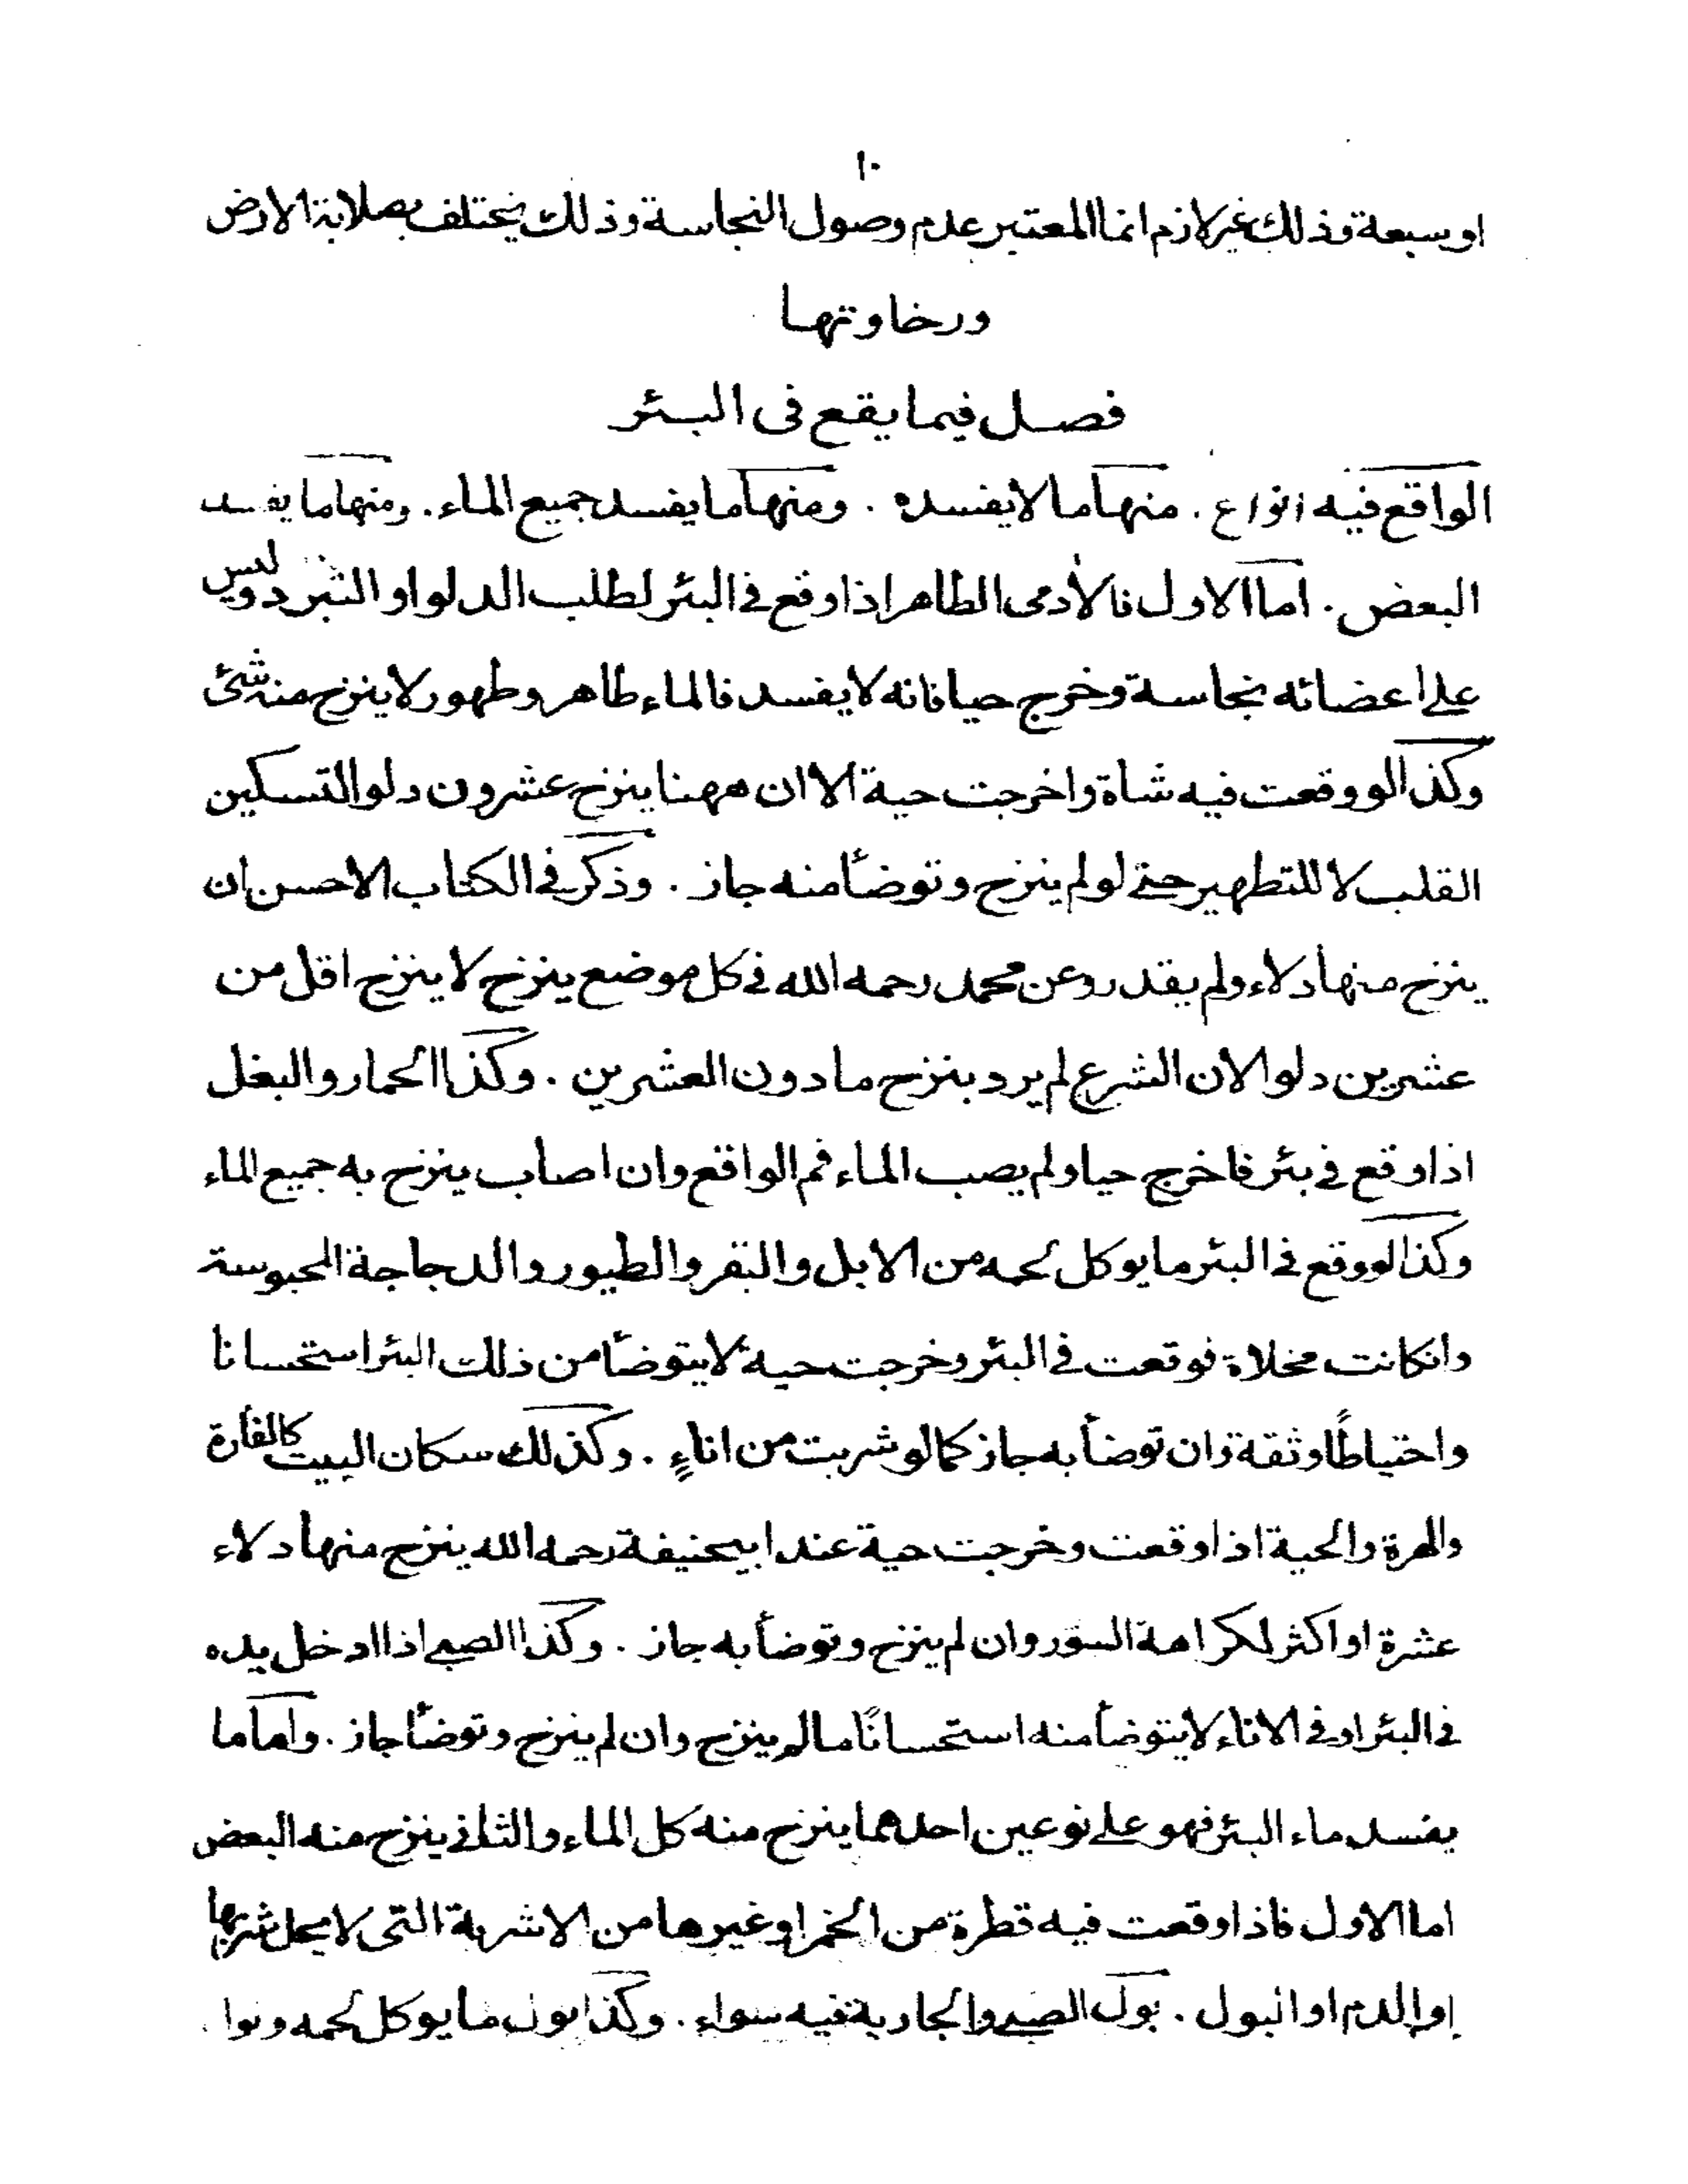 ١٠
او سبعة وذلك غير لازم انما المعتبر عدم وصول النجاسة وذلك يختلف بصلابة الارض
ورخاوتها
فصل فيما يقع فى البئر
الواقع فيه انواع . منها ما لا يفسده . ومنها ما يفسد جميع الماء . ومنها ما يفسد
البعض . اما الاول فالأدمى الطاهر اذا وقع فى البئر لطلب الدلو او التبرد وليس
على اعضائه نجاسة وخرج حيا فانه لا يفسد فالماء طاهر وطهور لا ينزح منه شئ
وكذا لو وقعت فيه شاة واخرجت حية الا ان ههنا ينزح عشرون دلوا لتسكين
القلب لا للتطهير حتى لو لم ينزح وتوضأ منه جاز . وذكر فى الكتاب الاحسن ان
ينزح منها دلاء ولم يقدر وعن محمد رحمه الله فى كل موضع ينزح لا ينزح اقل من
عشرين دلوا لان الشرع لم يرد بنزح ما دون العشرين . وكذا الحمار والبغل
اذا وقع فى بئر فاخرج حيا ولم يصب الماء فم الواقع وان اصاب ينزح به جميع الماء
وكذا لو وقع فى البئر ما يوكل لحمه من الابل والبقر والطيور والدجاجة المحبوسة
وانكانت مخلاة فوقعت فى البئر وخرجت حية لا يتوضأ من ذلك البئر استحسانا
واحتياطًا وثقة وان توضأ به جاز كما لو شربت من اناءٍ . وكذلك سكان البيت كالفأرة
والهرة والحية اذا وقعت وخرجت حية عند ابيحنيفة رحمه الله ينزح منها دلاء
عشرة او اكثر لكراهة السؤر وان لم ينزح وتوضأ به جاز . وكذا الصبى اذا ادخل يده
فى البئر او فى الاناء لا يتوضأ منه استحسانًا ما لم ينزح وان لم ينزح وتوضأ جاز . واما ما
يفسد ماء البئر فهو على نوعين احدهما ينزح منه كل الماء والثانى ينزح منه البعض
اما الاول فاذا وقعت فيه قطرة من الخمر او غيرها من الاشربة التى لا يحل شربها
او الدم او البول . بول الصبى والجارية فيه سواء . وكذا بول ما يوكل لحمه و